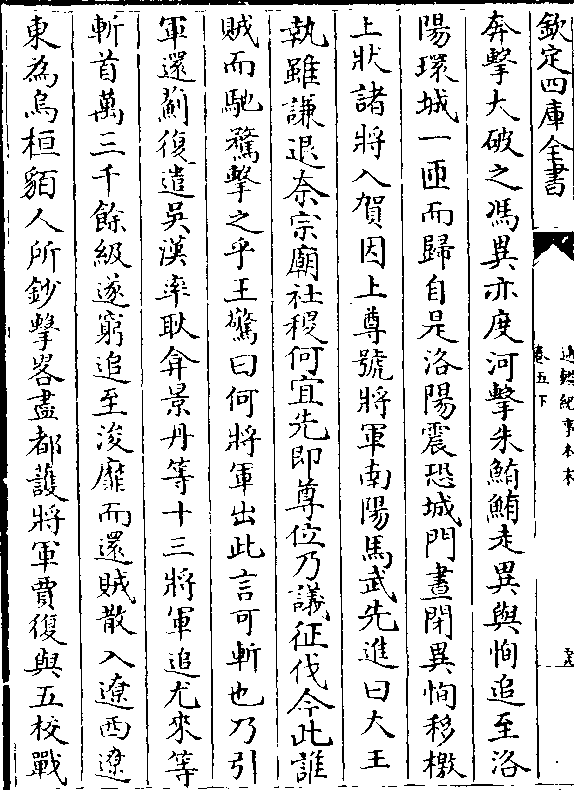 欽定四庫全書
通鑑紀事本末
卷五下
奔擊大破之馮異亦度河擊朱鮪鮪走異與恂追至洛
陽環城一匝而歸自是洛陽震恐城門晝閉異恂移檄
上狀諸將入賀因上尊號將軍南陽馬武先進曰大王
執雖謙退奈宗廟社稷何宜先即尊位乃議征伐今此誰
賊而馳騖擊之乎王驚曰何將軍出此言可斬也乃引
軍還薊復遣吳漢率耿弇景丹等十三將軍追尤來等
斬首萬三千餘級遂窮追至浚靡而還賊散入遼西遼
東為烏桓貊人所鈔擊畧盡都護將軍賈復與五校戰